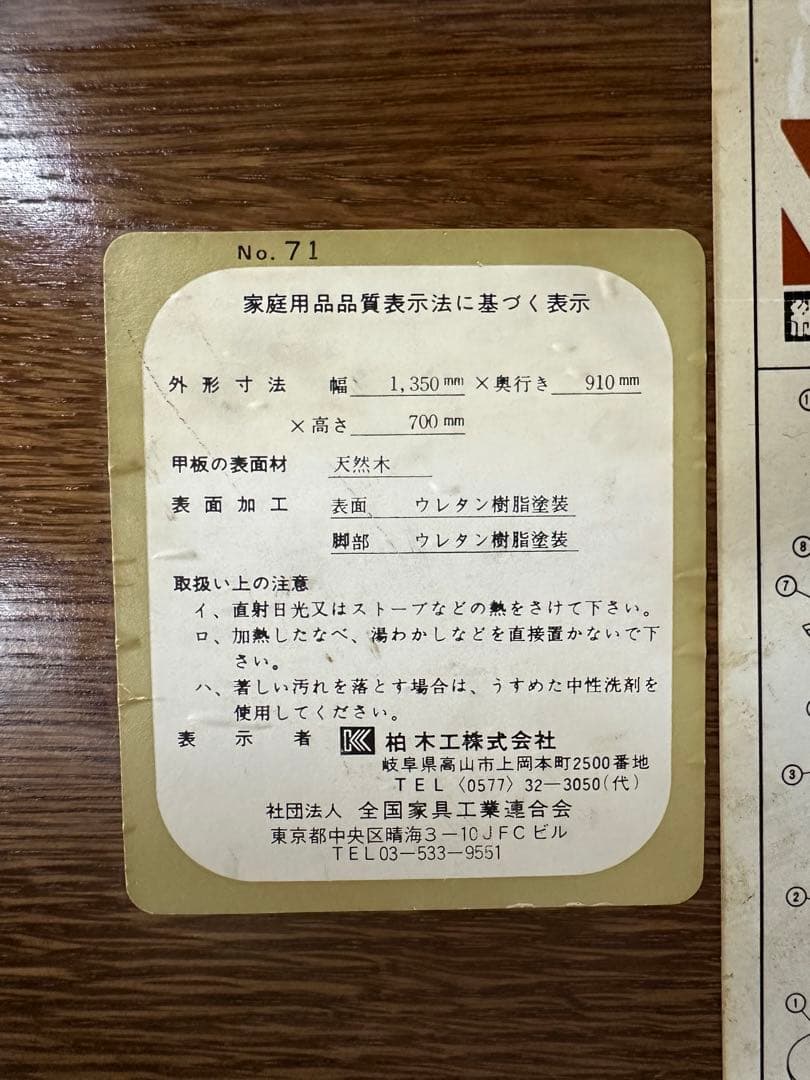 No. 71
家庭用品品質表示法に基づく表示
外形寸法 幅 1,350mm×奥行き 910mm
×高さ 700mm
甲板の表面材 天然木
表面加工 表面 ウレタン樹脂塗装
脚部 ウレタン樹脂塗装
取扱い上の注意
イ、直射日光又はストーブなどの熱をさけて下さい。
ロ、加熱したなべ、湯わかしなどを直接置かないで下
さい。
ハ、著しい汚れを落とす場合は、うすめた中性洗剤を
使用してください。
表示者 柏木工株式会社
岐阜県高山市上岡本町2500番地
TEL〈0577〉32―3050(代)
社団法人 全国家具工業連合会
東京都中央区晴海3―10JFCビル
TEL03―533―9551
⑧
⑦
③
②
①